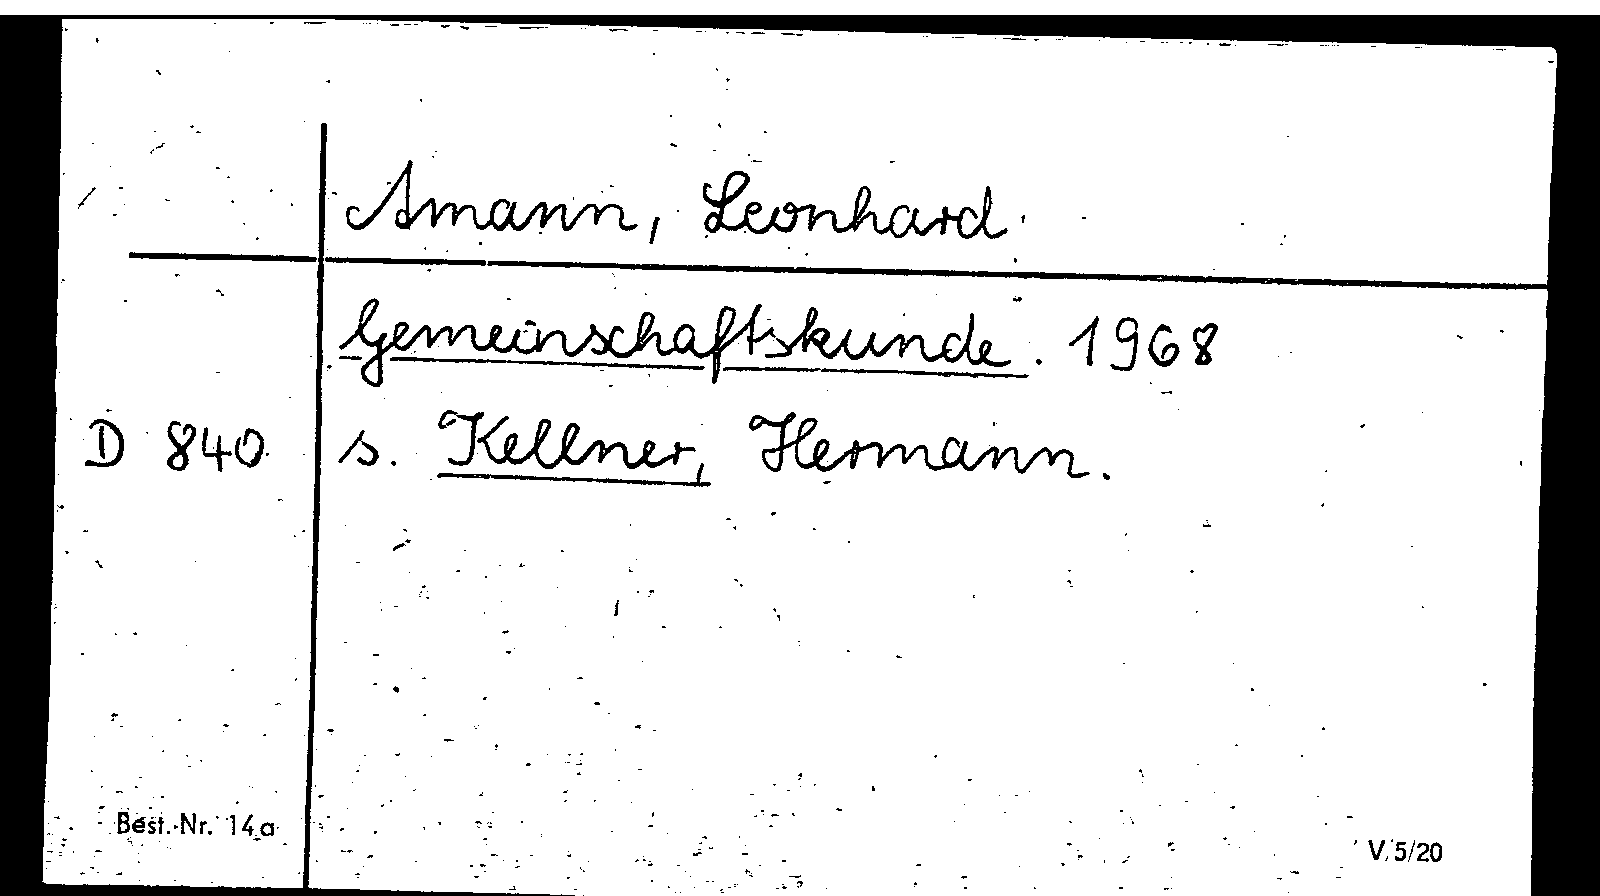 Amann, Leonhard
Gemeinschaftskunde. 1968
D 840 s. Kellner, Hermann.
Best.-Nr. 14a
V/5/20